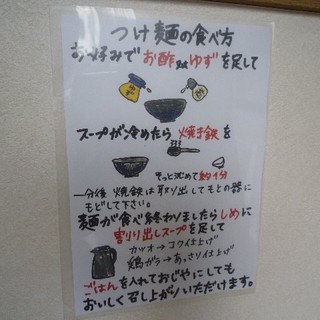 つけ麺の食べ方
お好みでお酢又はゆずを足して
スープが冷めたら焼き鉄を
そっと沈めて約1分
一分後 焼鉄は取り出してもとの器に
もどして下さい。
麺が食べ終わりましたらしめに
割り出しスープを足して
カツオ→コク仕上げ
鶏ガラ→あっさり仕上げ
ごはんを入れておじやにしても
おいしく召し上がりいただけます。